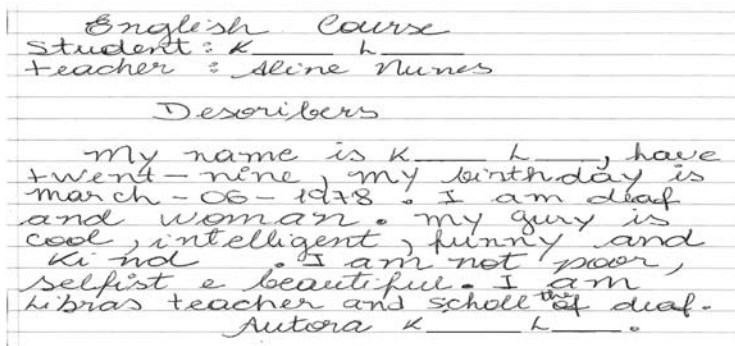 English Course
Student: K_____ L_____
teacher : Aline Nunes
Describers
My name is K____ L____, have
twent-nine, my birthday is
march-06-1978. I am deaf
and woman. my gury is
cool, intelligent, funny and
Kind . I am not poor,
selfist e beautiful. I am
Libras teacher and scholl the of deaf.
Autora K_____ L____.